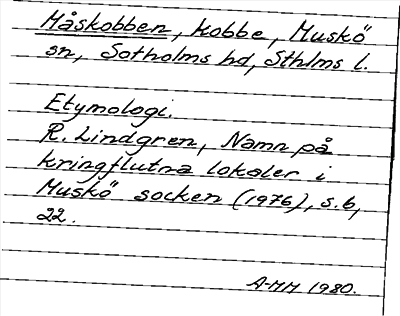 Måskobben, kobbe, Muskö
sn, Sotholms hd, Sthlms l.
Etymologi.
R. Lindgren, Namn på
kringflutna lokaler i
Muskö socken (1976), s. 6,
22.
A-MM 1980.